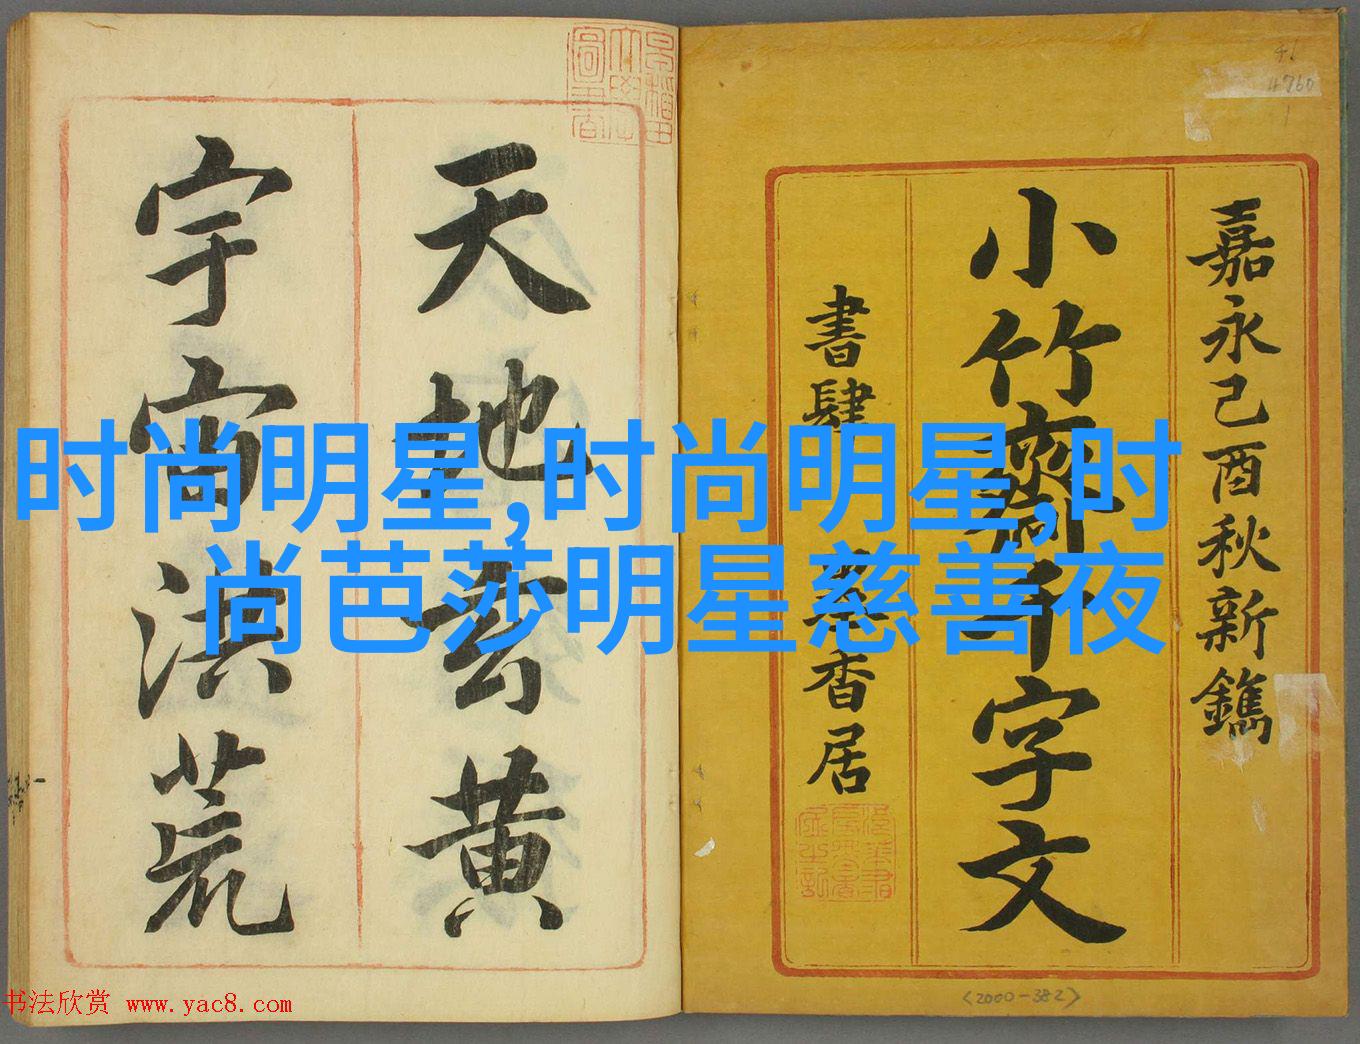 嘉永己酉秋新鐫
小竹齋千字文
書肆 香居
天地玄黄
宇宙洪荒
时尚明星,时尚明星,时
尚芭莎明星慈善夜
41
4760
<2000-382>
书法欣赏 www.yac8.com